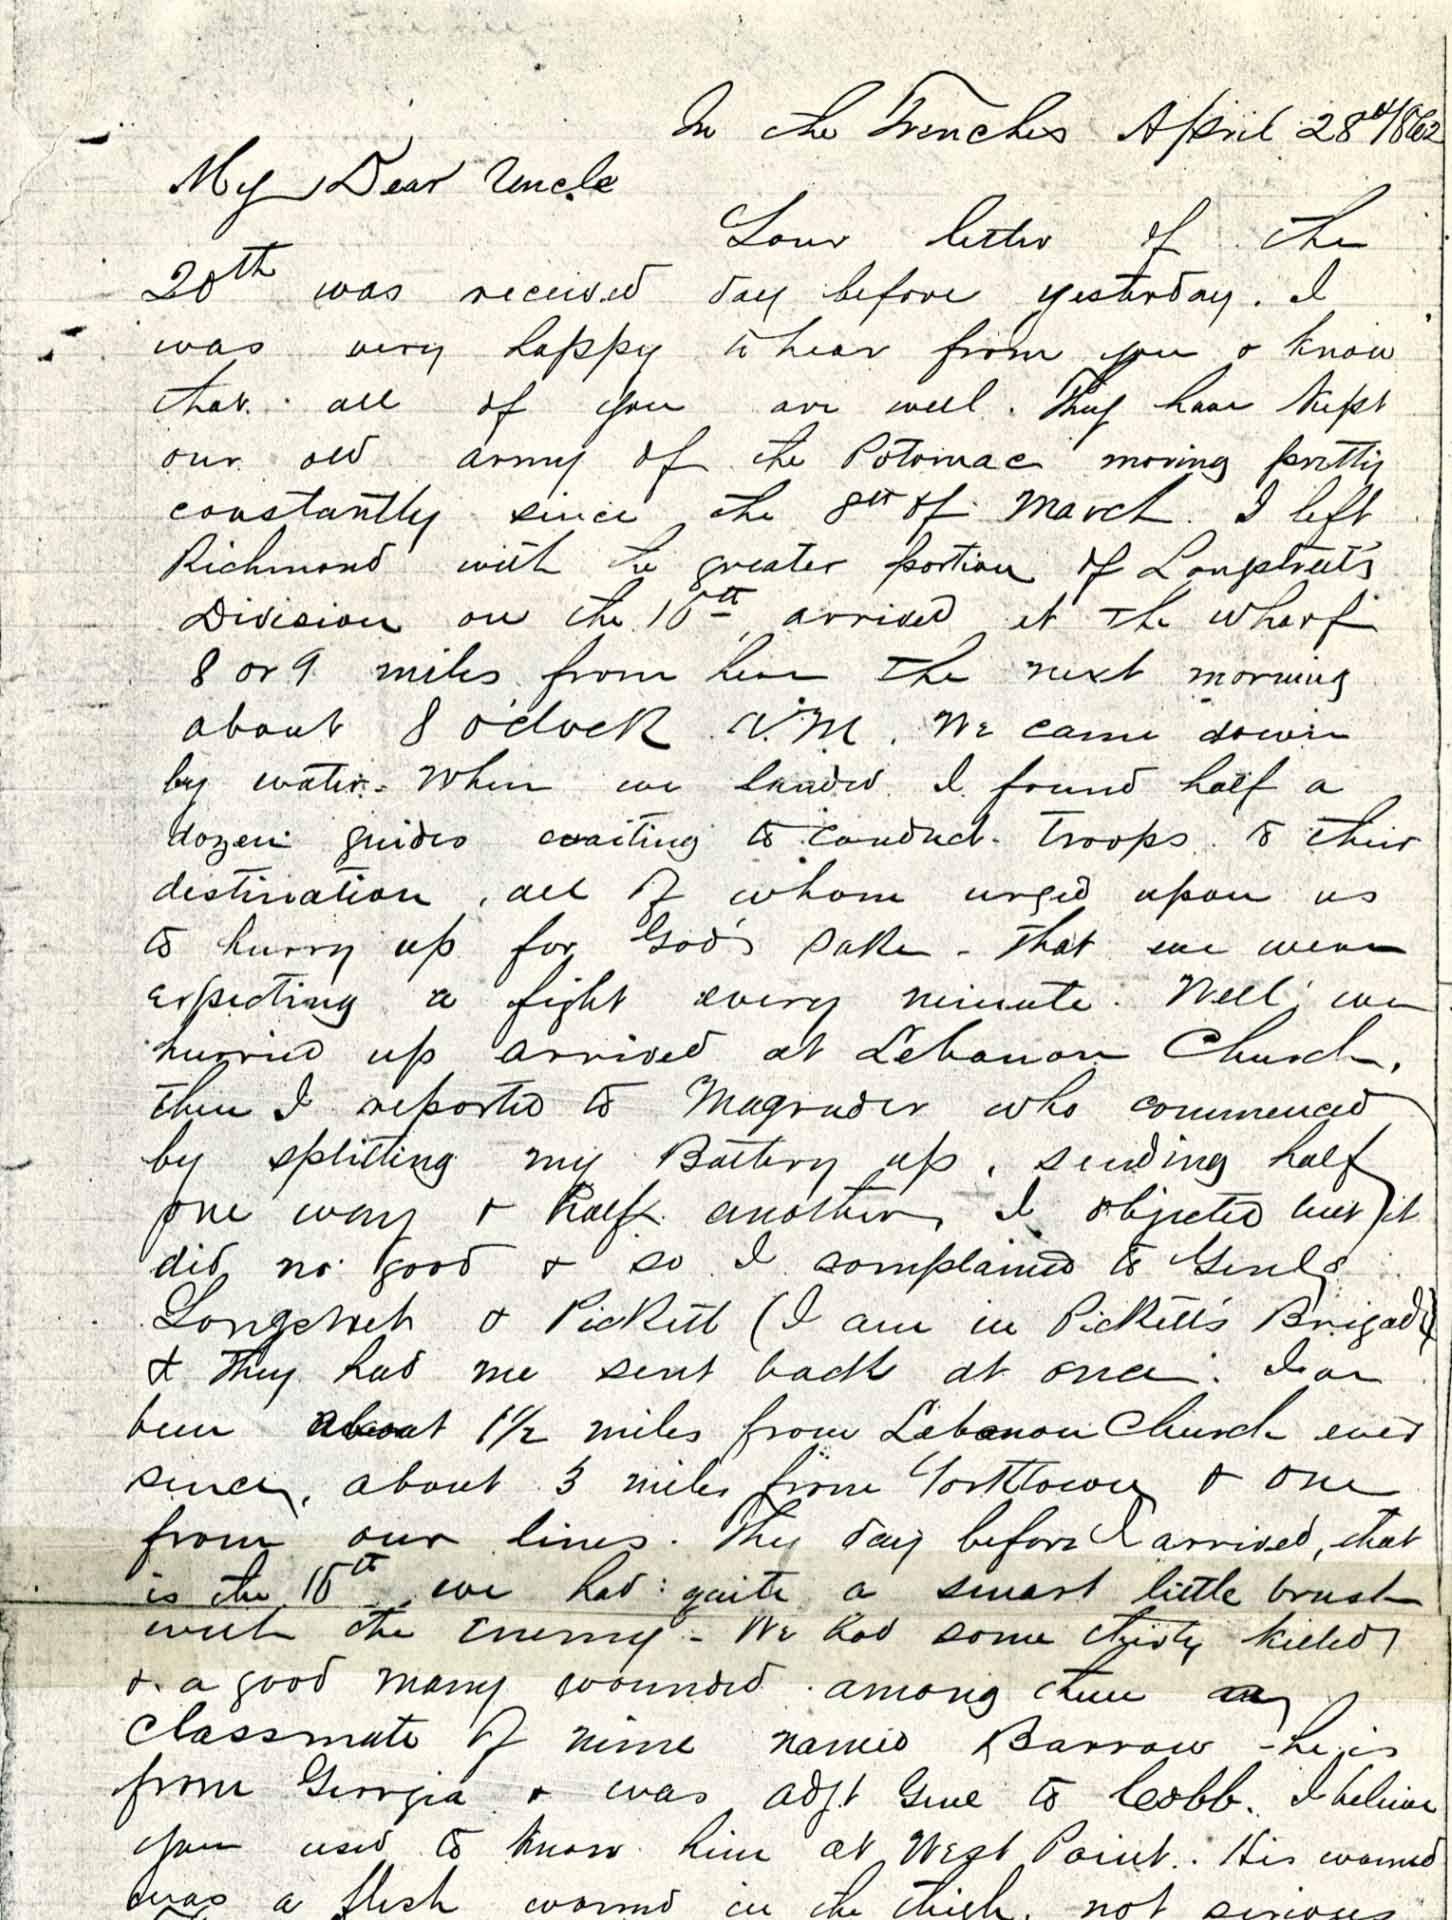 In the Trenches April 28th/1862
My Dear Uncle
Your letter of the
20th was received day before yesterday. I
was very happy to hear from you & know
that all of you are well. They have kept
our old army of the Potomac moving pretty
constantly since the 8th of March. I left
Richmond with the greater portion of Longstreet's
Division on the 16th, arrived at the wharf
8 or 9 miles from here the next morning
about 8 o'clock A.M. We came down
by water. When we landed I found half a
dozen guides waiting to conduct troops to their
destination, all of whom urged upon us
to hurry up for God's sake - that we were
expecting a fight every minute. Well, we
hurried up arrived at Lebanon Church,
then I reported to Magruder who commenced
by splitting my Battery up, sending half
one way & half another, I objected but it
did no good & so I complained to Genls
Longstreet & Pickett (I am in Pickett's Brigade)
& they had me sent back at once. Have
been about 1 1/2 miles from Lebanon Church ever
since, about 3 miles from Yorktown & one
from our lines. The day before I arrived, that
is the 16th we had quite a smart little brush
with the Enemy - We had some thirty killed
& a good many wounded among them a
classmate of mine named Barrow - he is
from Georgia & was adjt Genl to Cobb. I believe
you used to know him at West Point. His wound
was a flesh wound in the thigh, not serious